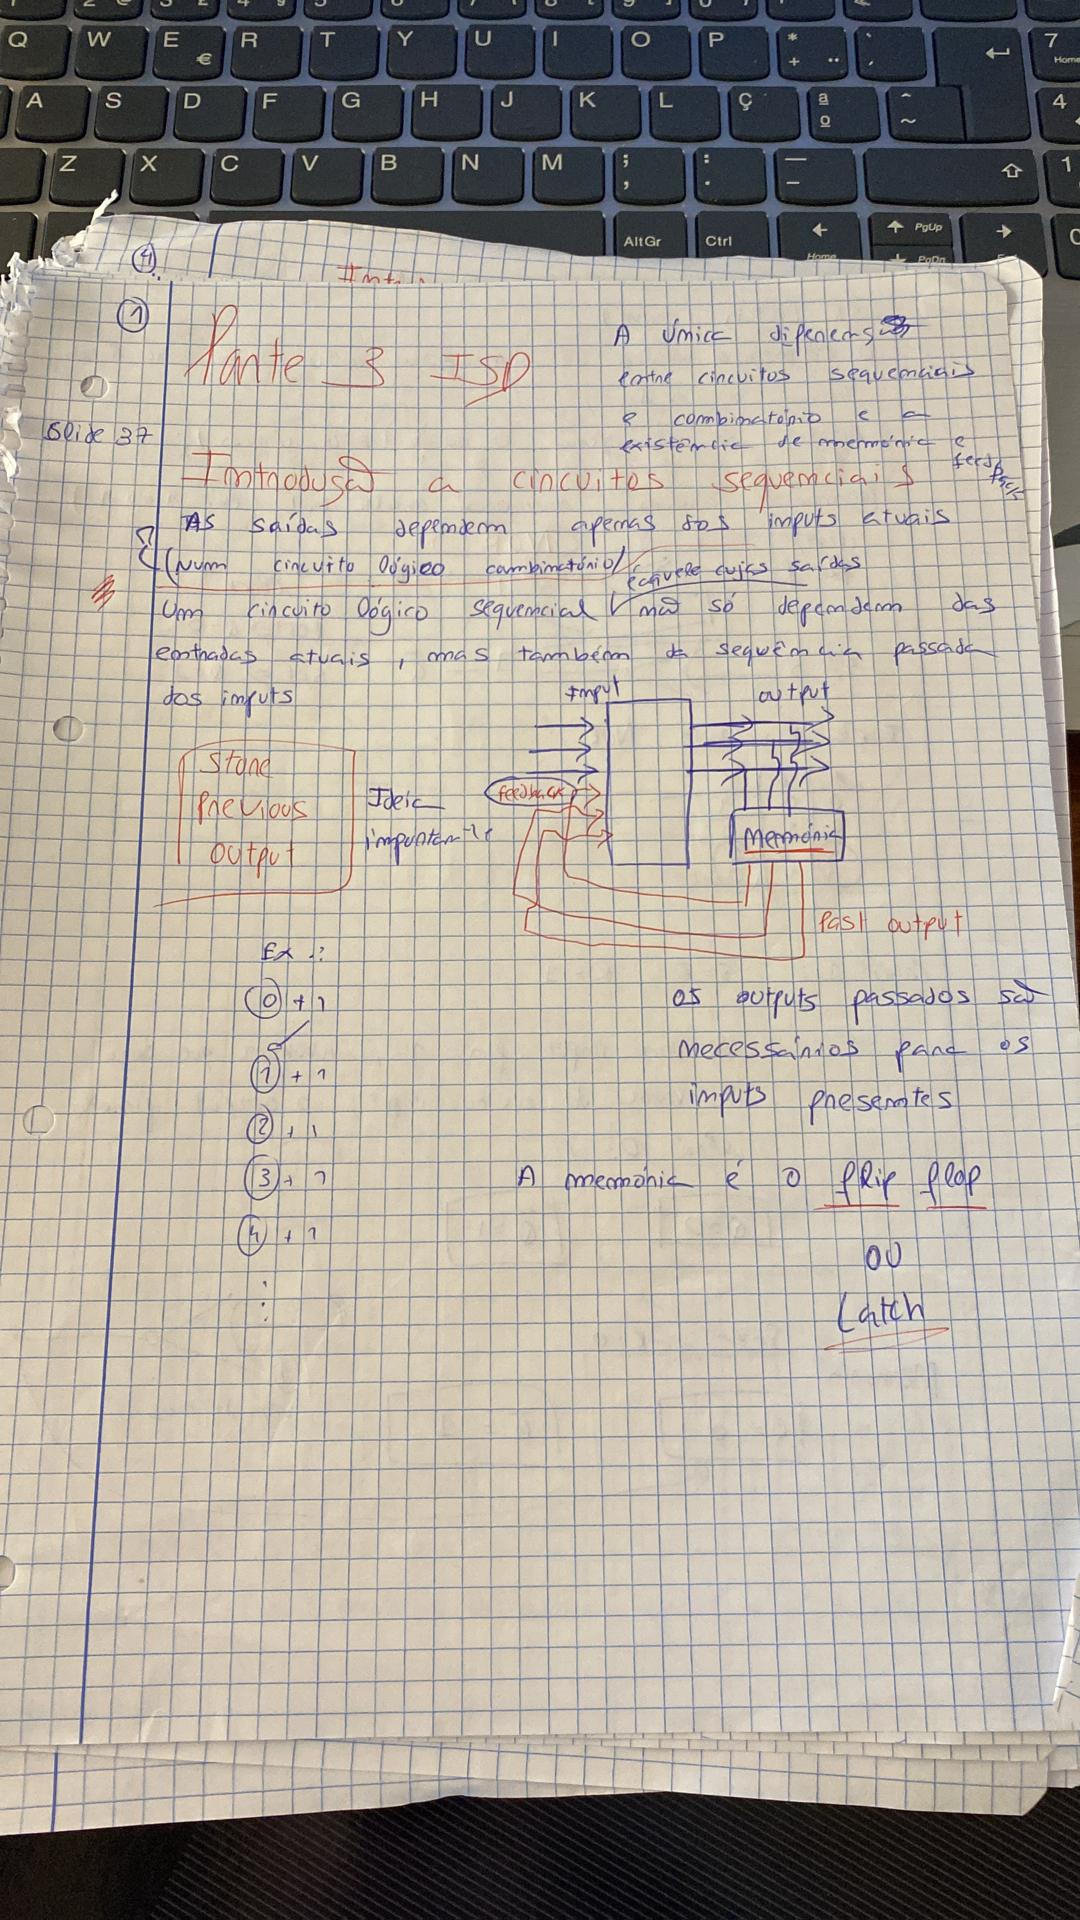 Q W E R T Y U I O P * + ¨ ` 7 Home
€
A S D F G H J K L Ç ª º ^ ~ 4
Z X C V B N M ; , : . _ - 1
Alt Gr Ctrl Home PgUp PgDn
4
1
Parte 3 ISD
A única diferença
entre circuitos sequenciais
e combinatório e a
existência de memória e
feedback
Slide 37
Introdusão a circuitos sequenciais
As saídas dependem apenas dos inputs atuais
(Num circuito lógico combinatório)
é aquele cujas saídas
Um circuito lógico sequencial não só dependem das
entradas atuais, mas também da sequência passada
dos inputs
Input
output
Store
Previous
output
Ideia
importante
feedback
Memória
Past output
Ex.:
0 + 1
1 + 1
2 + 1
3 + 1
4 + 1
⋮
os outputs passados são
necessários para os
inputs presentes
A memória é o flip flop
ou
Latch